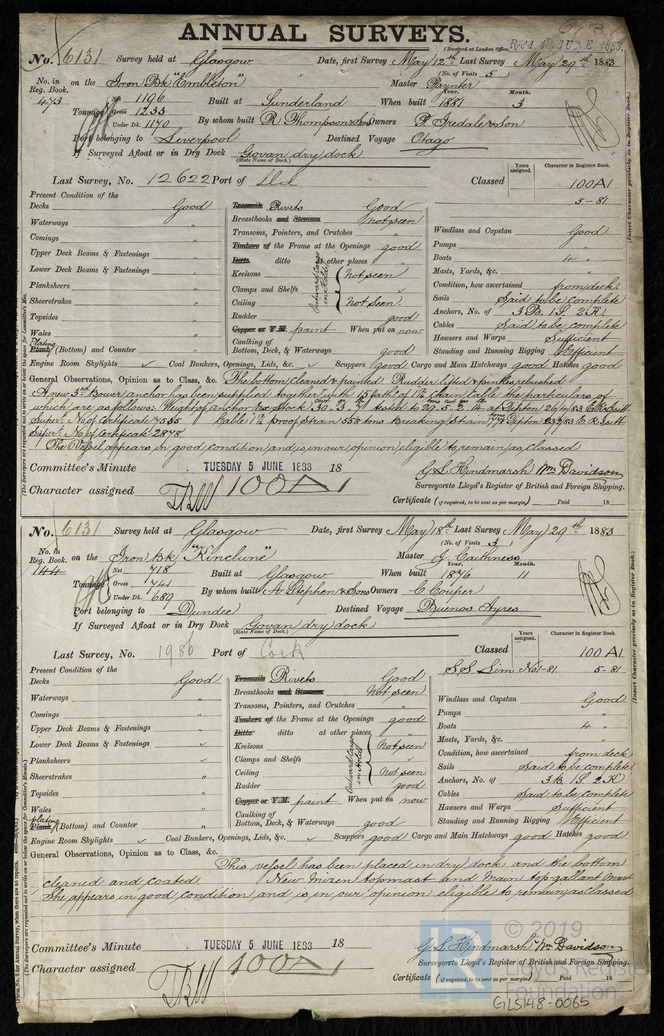 ANNUAL SURVEYS.
(Received at London Office, Rec'd 4 JUNE 1883
No. 6131 Survey held at Glasgow Date, first Survey May 12th Last Survey May 29th 1883
(No. of Visits 5)
No. in Reg. Book. 473 on the Iron Bk "Embleton" Master Paynter
Tonnage Net 1196 Gross 1233 Under Dk. 1170 Built at Sunderland When built Year. 1881 Month. 3
By whom built R Thompson & So Owners P Iredale & Son
Port belonging to Liverpool Destined Voyage Otago
If Surveyed Afloat or in Dry Dock Govan dry dock
(State Name of Dock.)
Last Survey, No. 12622 Port of Sld Classed Years assigned. Character in Register Book. 100A1
5-81
Present Condition of the
Decks Good
Waterways "
Comings "
Upper Deck Beams & Fastenings "
Lower Deck Beams & Fastenings "
Planksheers "
Sheerstrakes "
Topsides "
Wales "
Plating Plank (Bottom) and Counter "
Treenails Rivets Good
Breasthooks and Stemson not seen
Transoms, Pointers, and Crutches "
Timbers of the Frame at the Openings good
Ditto ditto at other places
Keelsons not seen
Clamps and Shelfs
Ceiling not seen
Outward Cargo in Holds
Rudder good
Copper or Y.M. paint When put on now
Caulking of
Bottom, Deck, & Waterways good
Windlass and Capstan Good
Pumps "
Boats 4 "
Masts, Yards, &c.
Condition, how ascertained from deck
Sails Said to be complete
Anchors, No. of 3 B. 1 S. 2 K
Cables Said to be complete
Hawsers and Warps Sufficient
Standing and Running Rigging Efficient
Engine Room Skylights ✓ Coal Bunkers, Openings, Lids, &c. ✓ Scuppers good Cargo and Main Hatchways good Hatches good
General Observations, Opinion as to Class, &c. The bottom cleaned & painted Rudder lifted & pintles rebushed
A new 3rd Bower anchor has been supplied together with 15 fath of 1 chain cable the particulars of
which are as follows: Weight of anchor ex stock 30.3.7 tested to 29.5.2.14 at Tipton 26/4/83
Supert No of Certificate 7555 Cable Proof Strain 55 tons Breaking Strain Tipton
Supert No of Certificate 2878
The Vessel appears in good condition and is in our opinion eligible to remain as classed
Committee's Minute TUESDAY 5 JUNE 1883 18
Character assigned 100A1
G S Hindmarsh Wm Davidson
Surveyors to Lloyd's Register of British and Foreign Shipping.
Certificate (if required, to be sent as per margin) Paid 18
No. 6131 Survey held at Glasgow Date, first Survey May 18th Last Survey May 29th 1883
(No. of Visits 3)
No. in Reg. Book. 144 on the Iron Bk "Kinclune" Master J Caithness
Tonnage Net 718 Gross 741 Under Dk. 689 Built at Glasgow When built Year. 1876 Month. 11
By whom built A Stephen & Sons Owners C Couper
Port belonging to Dundee Destined Voyage Buenos Ayres
If Surveyed Afloat or in Dry Dock Govan dry dock
(State Name of Dock.)
Last Survey, No. 1986 Port of Cork Classed Years assigned. Character in Register Book. 100A1
S.S. Lim No1-81 5-81
Present Condition of the
Decks Good
Waterways "
Comings "
Upper Deck Beams & Fastenings "
Lower Deck Beams & Fastenings ✓
Planksheers ✓
Sheerstrakes "
Topsides "
Wales "
plating Plank (Bottom) and Counter "
Treenails Rivets Good
Breasthooks and Stemson Not seen
Transoms, Pointers, and Crutches "
Timbers of the Frame at the Openings good
Ditto ditto at other places
Keelsons Not seen
Clamps and Shelfs
Ceiling not seen
Outward Cargo in Holds
Rudder good
Copper or Y.M. paint When put on now
Caulking of
Bottom, Deck, & Waterways good
Windlass and Capstan Good
Pumps "
Boats 4 "
Masts, Yards, &c.
Condition, how ascertained from deck
Sails Said to be complete
Anchors, No. of 3 B. 1 S. 2 K
Cables Said to be complete
Hawsers and Warps Sufficient
Standing and Running Rigging Efficient
Engine Room Skylights ✓ Coal Bunkers, Openings, Lids, &c. ✓ Scuppers good Cargo and Main Hatchways good Hatches good
General Observations, Opinion as to Class, &c.
This vessel has been placed in dry dock and the bottom
cleaned and coated. New Mizen topmast and Main top gallant mast
She appears in good condition and is, in our opinion eligible to remain as classed
Committee's Minute TUESDAY 5 JUNE 1883 18
Character assigned 100A1
G S Hindmarsh Wm Davidson
Surveyors to Lloyd's Register of British and Foreign Shipping.
Certificate (if required, to be sent as per margin) Paid 18
© 2019
Lloyd's Register
Foundation
GLS148-0065
(Insert Character precisely as in Register Book.)
(Insert Character precisely as in Register Book.)